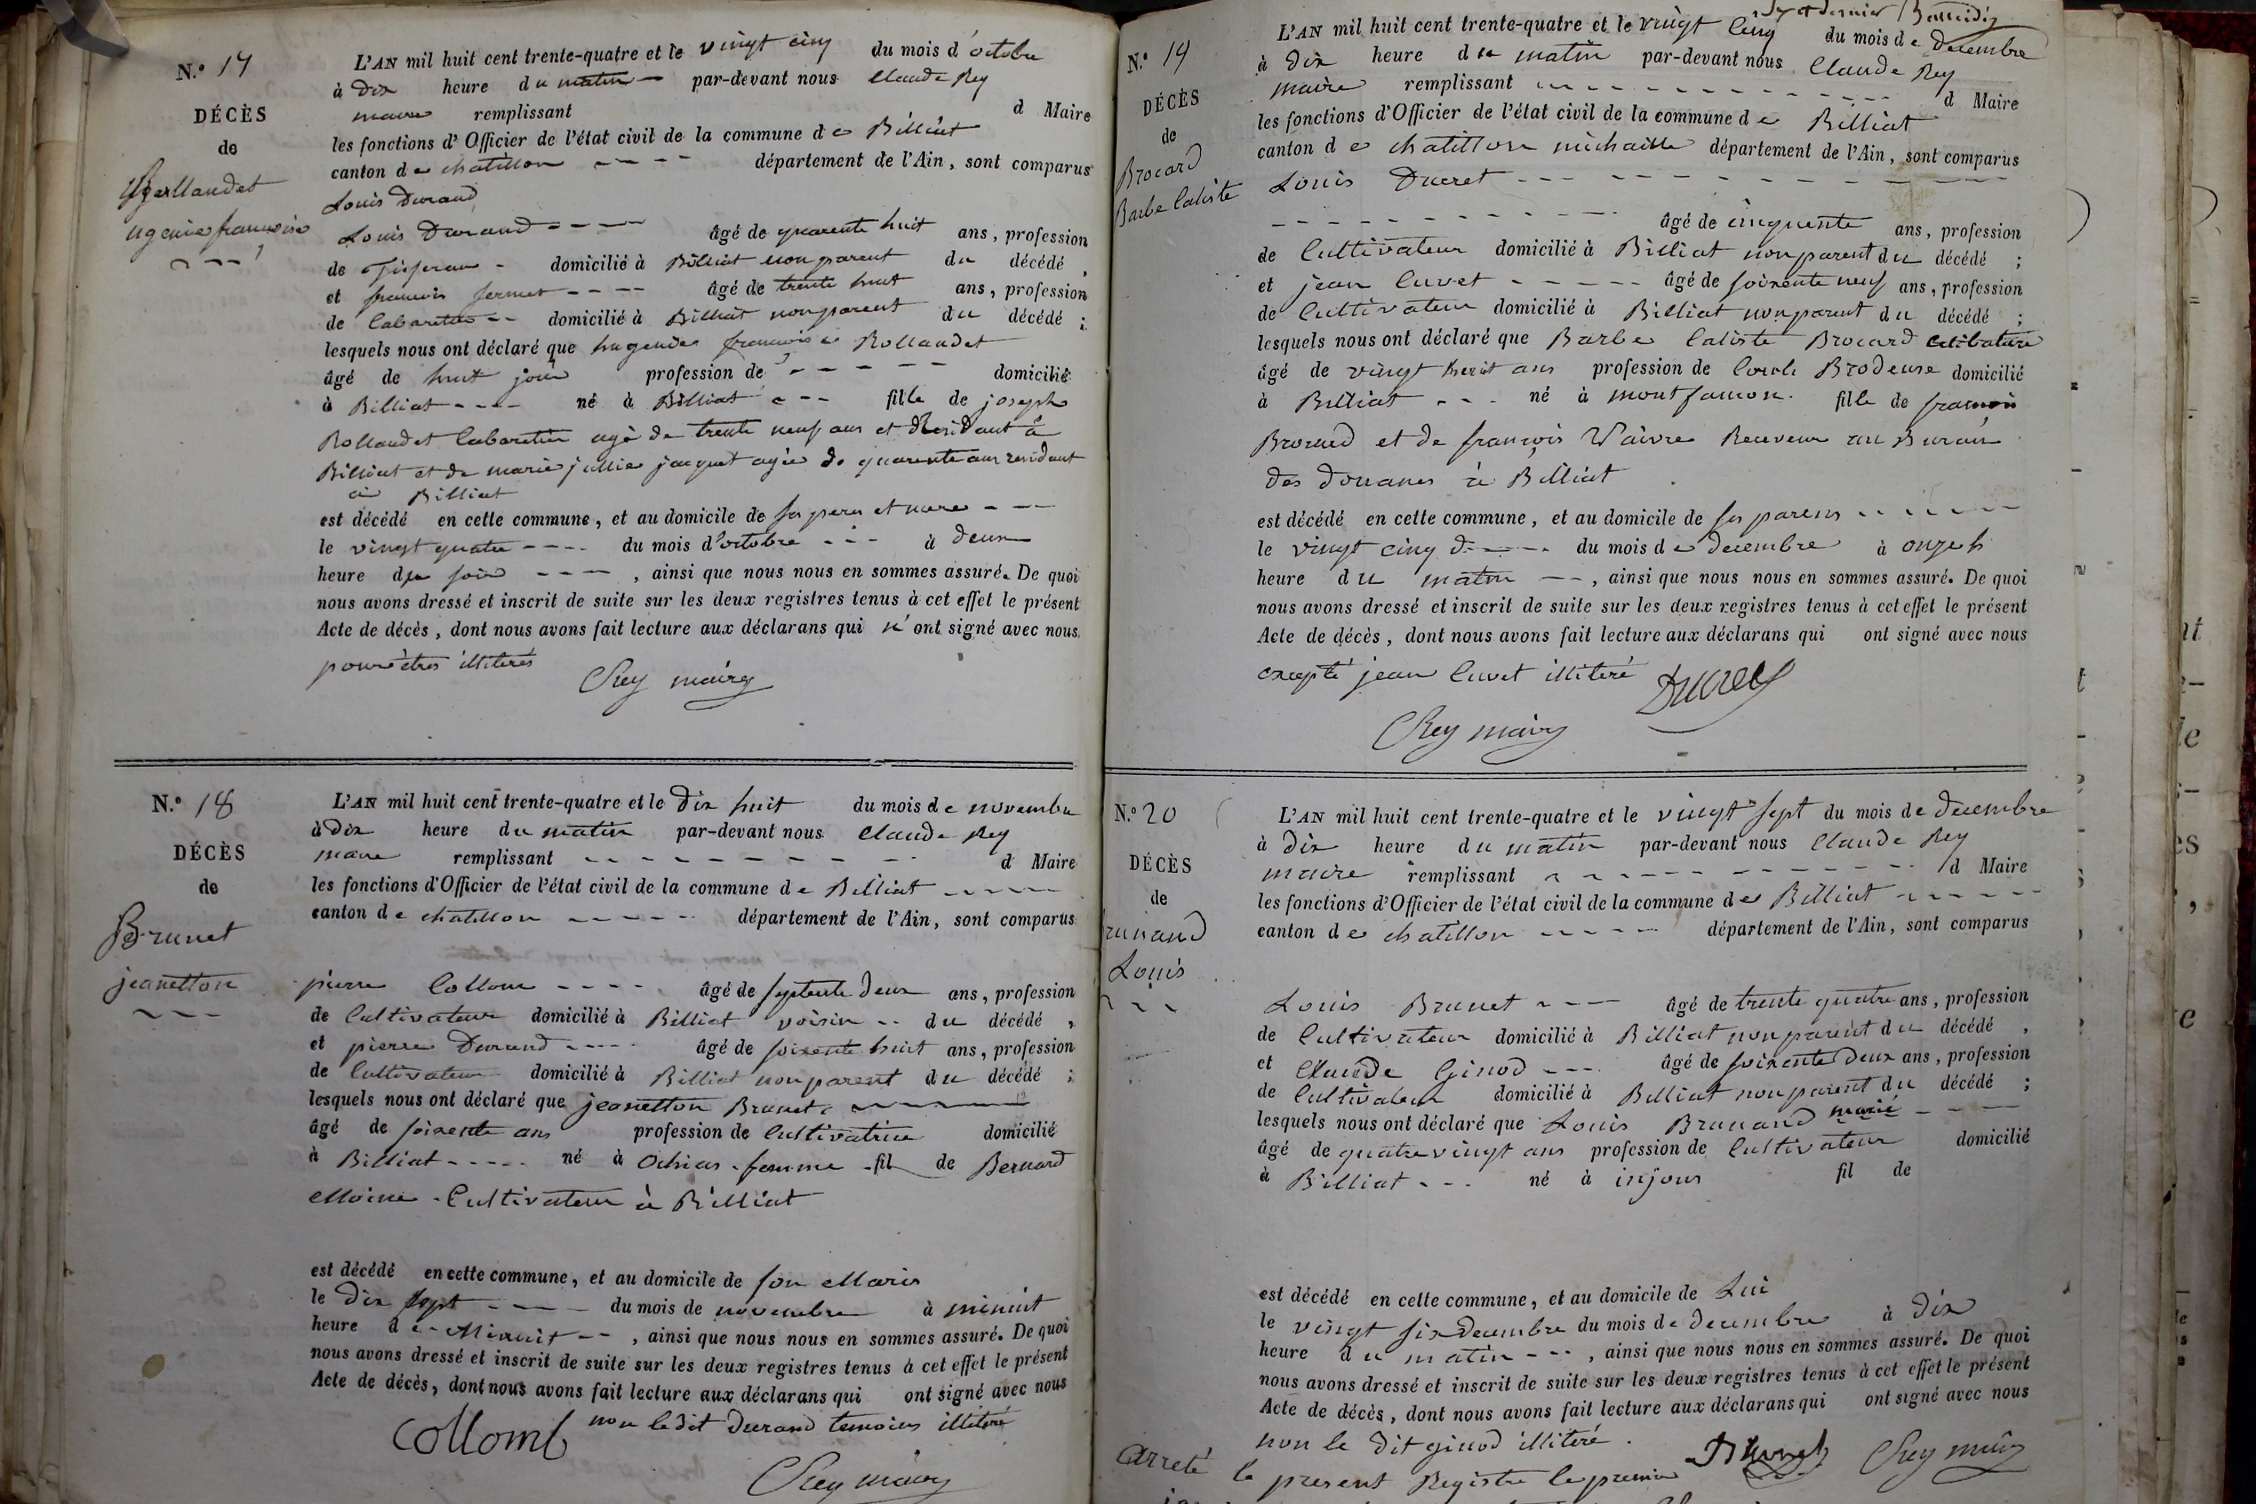 N.° 17
DÉCÈS
de
Rollandet
ugenie francoise
L'AN mil huit cent trente-quatre et le vingt cinq du mois d'octobre
à dix heure du matin par-devant nous Claude Rey
maire remplissant d Maire
les fonctions d'Officier de l'état civil de la commune de Billiat
canton de chatillon département de l'Ain, sont comparus
Louis Durand
Louis Durand âgé de quarente huit ans, profession
de Tisseran domicilié à Billiat non parent du décédé,
et francois fermet âgé de trente huit ans, profession
de Cabaretier domicilié à Billiat non parent du décédé ;
lesquels nous ont déclaré que hugenie francoise Rollandet
âgé de huit jour profession de domicilié
à Billiat né à Billiat fille de joseph
Rollandet Cabaretier agé de trente neuf ans et Residant à
Billiat et de marie jullie jacquet agée de quarente ans residant
à Billiat
est décédé en cette commune, et au domicile de ses peres et mere
le vingt quatre du mois d'octobre à deux
heure du soir, ainsi que nous nous en sommes assuré. De quoi
nous avons dressé et inscrit de suite sur les deux registres tenus à cet effet le présent
Acte de décès, dont nous avons fait lecture aux déclarans qui n'ont signé avec nous
pour êtres illiterés
CRey maire
N.° 18
DÉCÈS
de
Brunet
jeanetton
L'AN mil huit cent trente-quatre et le dix huit du mois de novembre
à dix heure du matin par-devant nous Claude Rey
maire remplissant d Maire
les fonctions d'Officier de l'état civil de la commune de Billiat
canton de chatillon département de l'Ain, sont comparus
pierre Collom âgé de septente deux ans, profession
de Cultivateur domicilié à Billiat voisin du décédé,
et pierre Durand âgé de soixente huit ans, profession
de Cultivateur domicilié à Billiat non parent du décédé ;
lesquels nous ont déclaré que jeanetton Brunet
âgé de soixente ans profession de Cultivatrice domicilié
à Billiat né à Ochias femme fil de Bernard
Moine Cultivateur à Billiat
est décédé en cette commune, et au domicile de son Maris
le dix sept du mois de novembre à minuit
heure de Minuit, ainsi que nous nous en sommes assuré. De quoi
nous avons dressé et inscrit de suite sur les deux registres tenus à cet effet le présent
Acte de décès, dont nous avons fait lecture aux déclarans qui ont signé avec nous
non le dit Durand temoins illiteré
Collomb
CRey maire
et dernier
N.° 19
DÉCÈS
de
Brocard
Barbe Caliste
L'AN mil huit cent trente-quatre et le vingt cinq du mois de decembre
à dix heure du matin par-devant nous Claude Rey
maire remplissant d Maire
les fonctions d'Officier de l'état civil de la commune de Billiat
canton de chatillon michaille département de l'Ain, sont comparus
Louis Ducret
âgé de cinquente ans, profession
de Cultivateur domicilié à Billiat non parent du décédé ;
et jean Cuvet âgé de soixente neuf ans, profession
de Cultivateur domicilié à Billiat non parent du décédé ;
lesquels nous ont déclaré que Barbe Caliste Brocard celibataire
âgé de vingt huit ans profession de Brodeuse domicilié
à Billiat né à montfaucon fille de francois
Brocard et de francois Vaivre Receveur au Burau
des douanes à Billiat
est décédé en cette commune, et au domicile de ses parens
le vingt cinq du mois de decembre à onze h
heure du matin, ainsi que nous nous en sommes assuré. De quoi
nous avons dressé et inscrit de suite sur les deux registres tenus à cet effet le présent
Acte de décès, dont nous avons fait lecture aux déclarans qui ont signé avec nous
excepté jean Cuvet illiteré Ducret
CRey maire
N.° 20
DÉCÈS
de
runand
Louis
L'AN mil huit cent trente-quatre et le vingt sept du mois de decembre
à dix heure du matin par-devant nous Claude Rey
maire remplissant d Maire
les fonctions d'Officier de l'état civil de la commune de Billiat
canton de chatillon département de l'Ain, sont comparus
Louis Brunet âgé de trente quatre ans, profession
de Cultivateur domicilié à Billiat non parent du décédé,
et Claude Ginod âgé de soixente deux ans, profession
de Cultivateur domicilié à Billiat non parent du décédé ;
lesquels nous ont déclaré que Louis Brunand marié
âgé de quatre vingt ans profession de Cultivateur domicilié
à Billiat né à injoux fil de
est décédé en cette commune, et au domicile de Lui
le vingt six decembre du mois de decembre à dix
heure du matin, ainsi que nous nous en sommes assuré. De quoi
nous avons dressé et inscrit de suite sur les deux registres tenus à cet effet le présent
Acte de décès, dont nous avons fait lecture aux déclarans qui ont signé avec nous
non le dit ginod illiteré. Brunet CRey maire
Arreté le present Registre le premier